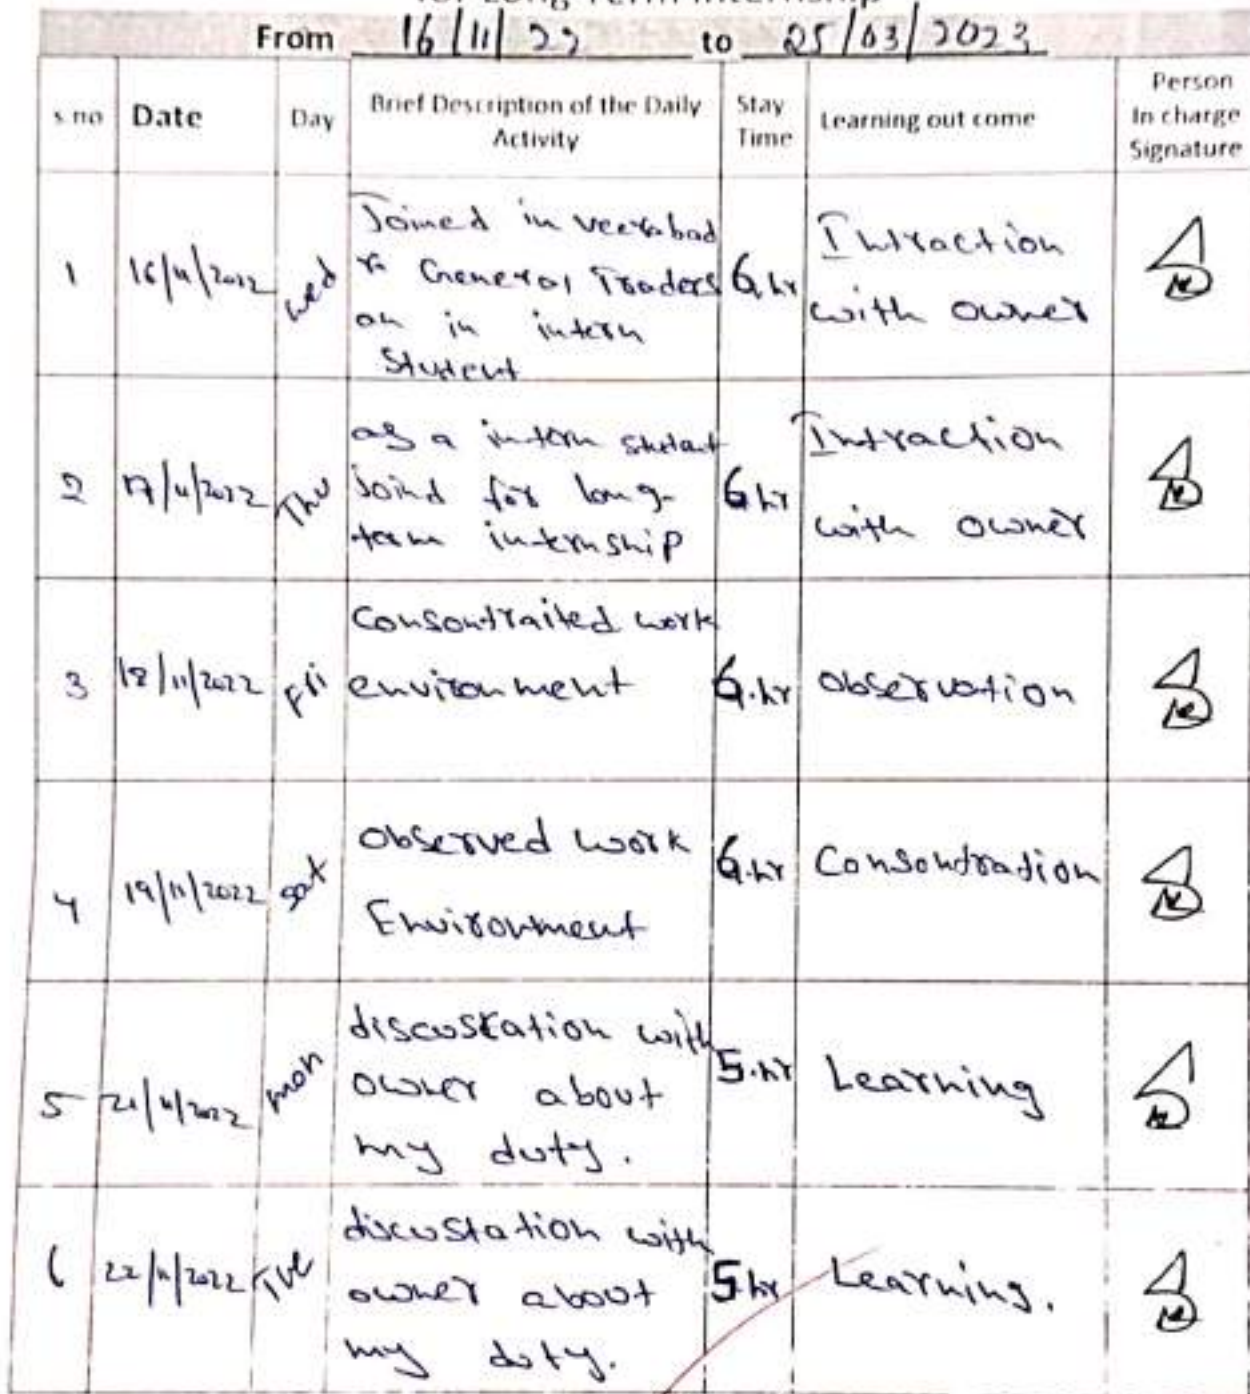 for Long Term Internship
From 16/11/22 to 25/03/2023
s.no Date Day Brief Description of the Daily Activity Stay Time Learning out come Person In charge Signature
1 16/11/2022 wed
Joined in veerabad
r General Traders
an in intern
Student
6.hr
Intraction
with owner
2 17/11/2022 Thu
as a intern student
joind for long-
term internship
6 hr
Intraction
with owner
3 18/11/2022 fri
Consontraited work
environment
6.hr
observation
4 19/11/2022 sat
observed work
Environment
6.hr
Consontration
5 21/11/2022 mon
discustation with
owner about
my duty.
5.hr
Learning
6 22/11/2022 Tue
discustation with
owner about
my duty.
5 hr
Learning.